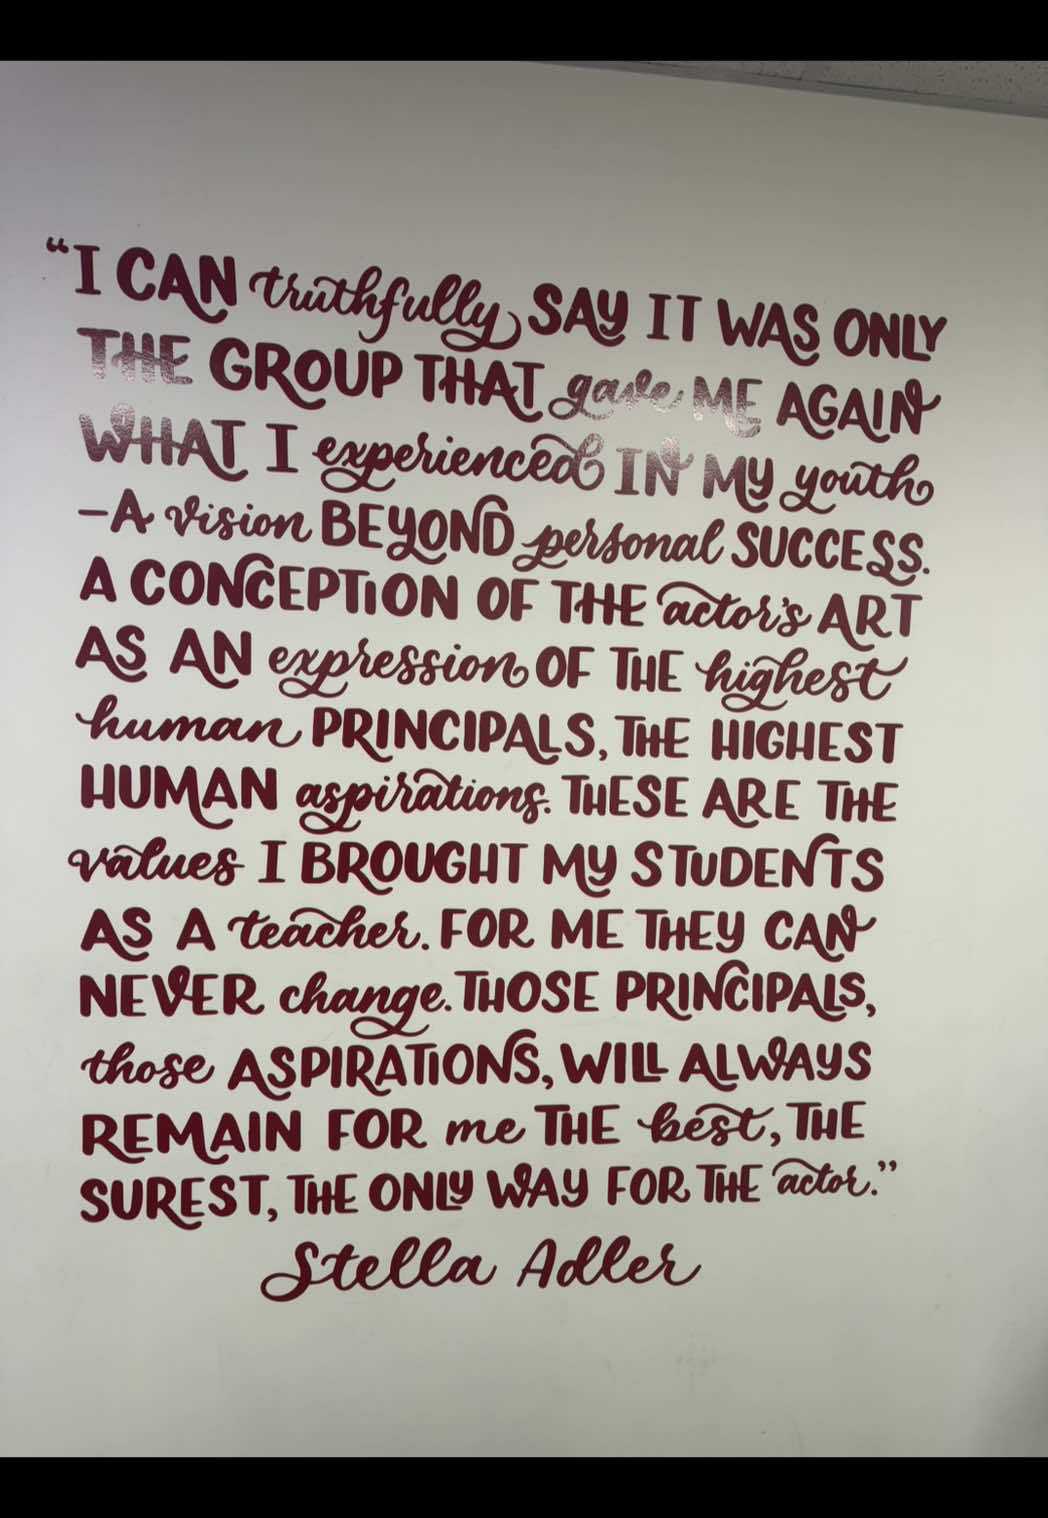 “I CAN truthfully SAY IT WAS ONLY
THE GROUP THAT gave ME AGAIN
WHAT I experienced IN MY youth
–A vision BEYOND personal SUCCESS.
A CONCEPTION OF THE actor's ART
AS AN expression OF THE highest
human PRINCIPALS, THE HIGHEST
HUMAN aspirations. THESE ARE THE
values I BROUGHT MY STUDENTS
AS A teacher. FOR ME THEY CAN
NEVER change. THOSE PRINCIPALS,
those ASPIRATIONS, WILL ALWAYS
REMAIN FOR me THE best, THE
SUREST, THE ONLY WAY FOR THE actor.”
Stella Adler